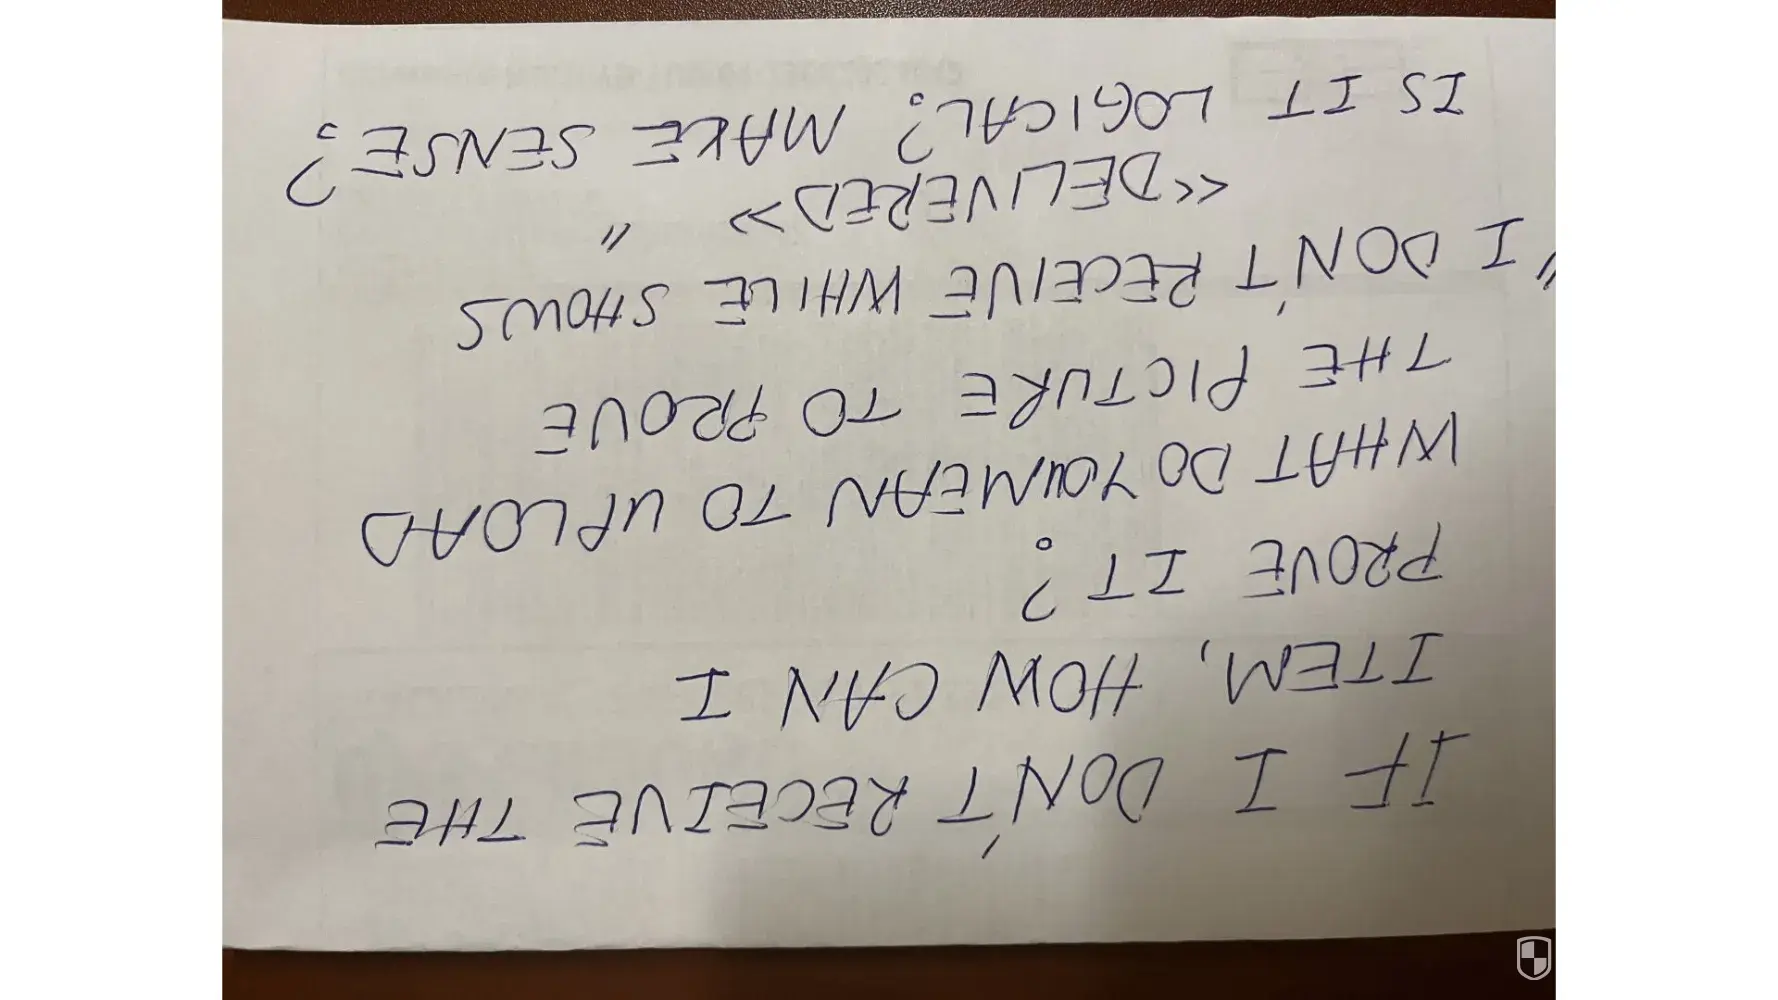 IF I DON'T RECEIVE THE
ITEM, HOW CAN I
PROVE IT?
WHAT DO YOU MEAN TO UPLOAD
THE PICTURE TO PROVE
"I DON'T RECEIVE WHILE SHOWS
<<DELIVERED>> "
IS IT LOGICAL? MAKE SENSE?